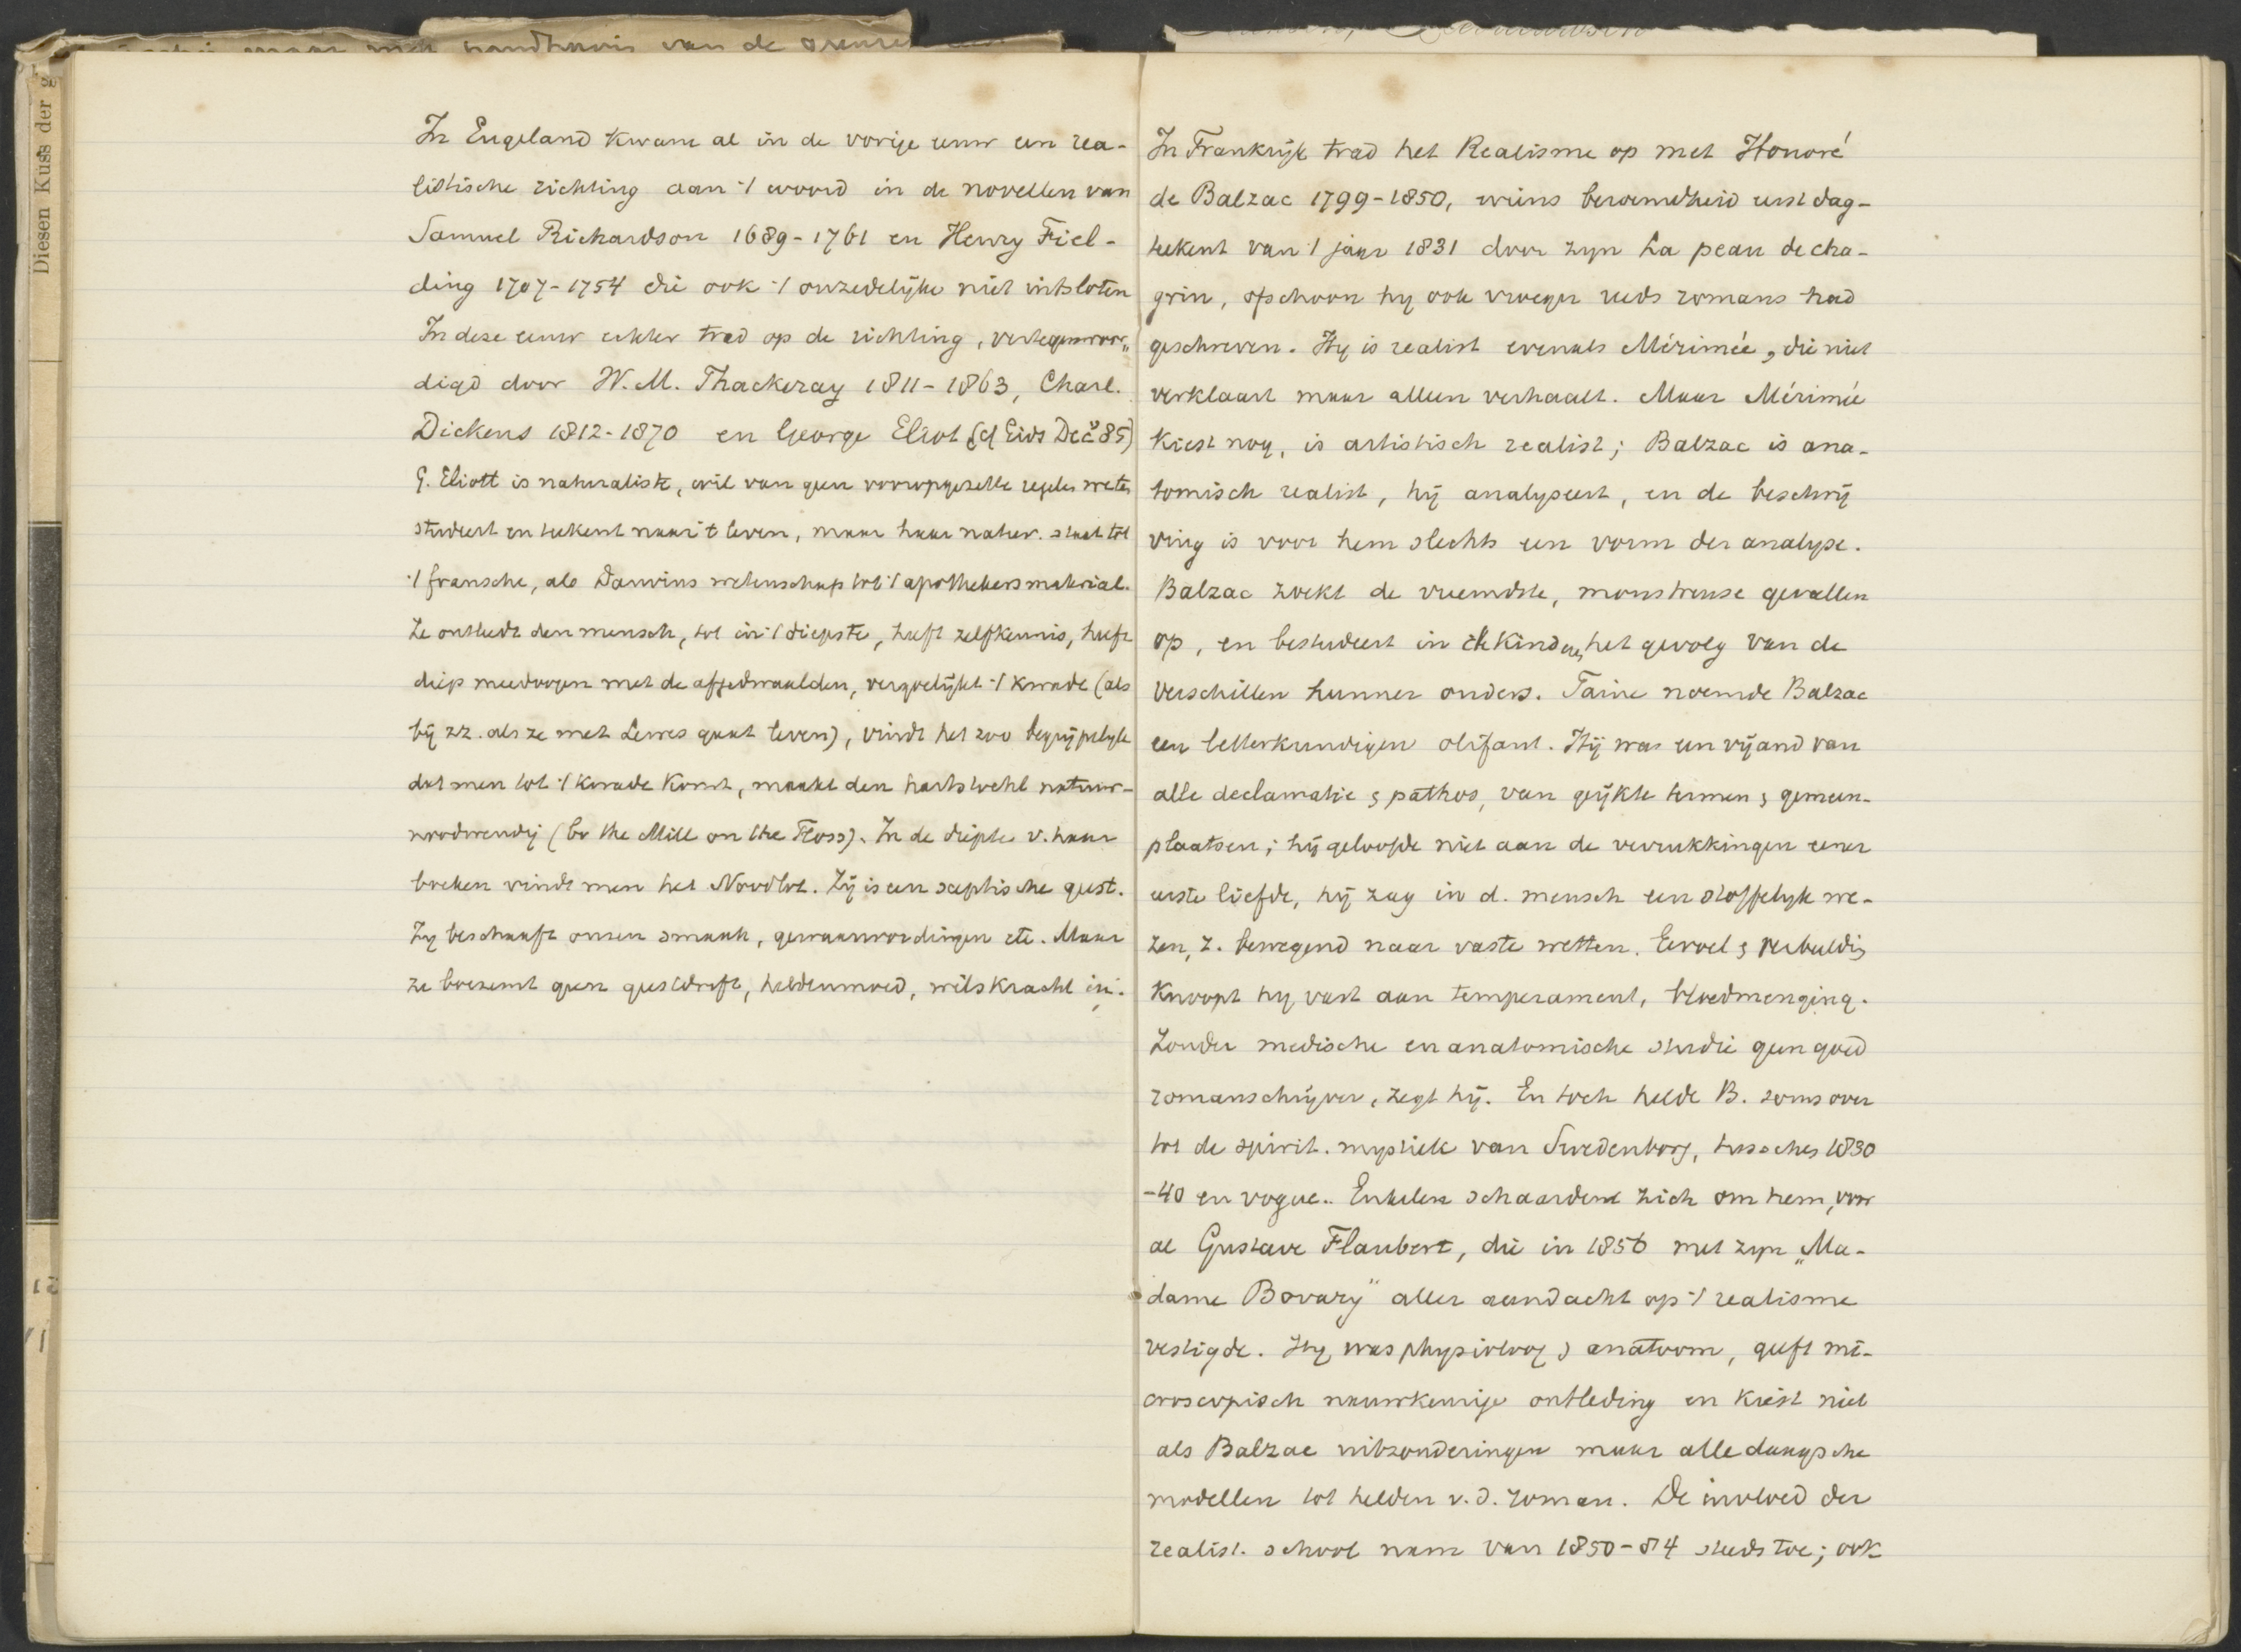 maar met handhavis van de grenzen
Diesen Kuss der g
In Engeland kwam al in de vorige eeuw een rea-
listische richting aan 't woord in de novellen van
Samuel Richardson 1689-1761 en Henry Fiel-
ding 1707-1754 die ook 't onzedelijke niet uitsloten
In deze eeuw echter trad op de richting, vertegenwoor„
digd door W. M. Thackeray 1811-1863, Charl.
Dickens 1812-1870 en George Eliot (cf Gids Dec 85)
G. Eliott is naturaliste, wil van geen vooropgezette regeles weten
studeert en teekent naar 't leven, maar haar natur. staat tot
't fransche, als Darwins wetenschap tot 't apothekersmaterial.
Ze ontleedt den mensch, tot in 't diepste, heeft zelfkennis, heeft
diep meedoogen met de afgedwaalden, vergoelijkt 't kwade (als
bij zz. als ze met Lewes gaat leven), vindt het zoo begrijpelyk
dat men tot 't kwade komt, maakt den hartstocht natuur-
noodwendig (bv the Mill on the Floss). In de diepte v. haar
boeken vindt men het Noodlot. Zij is een sceptische geest.
Zy beschaaft onzen smaak, gewaarwordingen etc. Maar
ze boezemt geen geestdrift, heldenmoed, wilskracht in.
In Frankrijk trad het Realisme op met Honoré
de Balzac 1799-1850, wiens beroemdheid eerst dag-
teekent van 't jaar 1831 door zyn La peau de cha-
grin, ofschoon hy ook vroeger reeds romans had
geschreven. Hy is realist evenals Mérimée, die niet
verklaart maar alleen verhaalt. Maar Mérimée
kiest nog, is artistisch realist; Balzac is ana-
tomisch realist, hij analyseert, en de beschrij
ving is voor hem slechts een vorm der analyse.
Balzac zoekt de vreemdste, monstreuse gevallen
op, en bestudeert in de kinderen het gevolg van de
verschillen hunner ouders. Taine noemde Balzac
een letterkundigen olifant. Hij was een vijand van
alle declamatie & pathos, van geijkte termen & gemeen-
plaatsen; hij geloofde niet aan de verrukkingen eener
eerste liefde, hij zag in d. mensch een stoffelyk we-
zen, z. bewegend naar vaste wetten. Gevoel & verbeelding
knoopt hy vast aan temperament, bloedmenging.
Zonder medische en anatomische studie geen goed
romanschrijver, zegt hij. En toch helde B. soms over
tot de spirit. mystiek van Swedenborg, tusschen 1830
-40 en vogue. Enkelen schaarden zich om hem, voor
al Gustave Flaubert, die in 1856 met zyn „Ma-
dame Bovary" aller aandacht op 't realisme
vestigde. Hy was physioloog & anatoom, geeft mi-
croscopisch nauwkeurige ontleding en kiest niet
als Balzac uitzonderingen maar alledaagsche
modellen tot helden v. d. roman. De invloed der
realist. school nam van 1850-84 steeds toe; ook